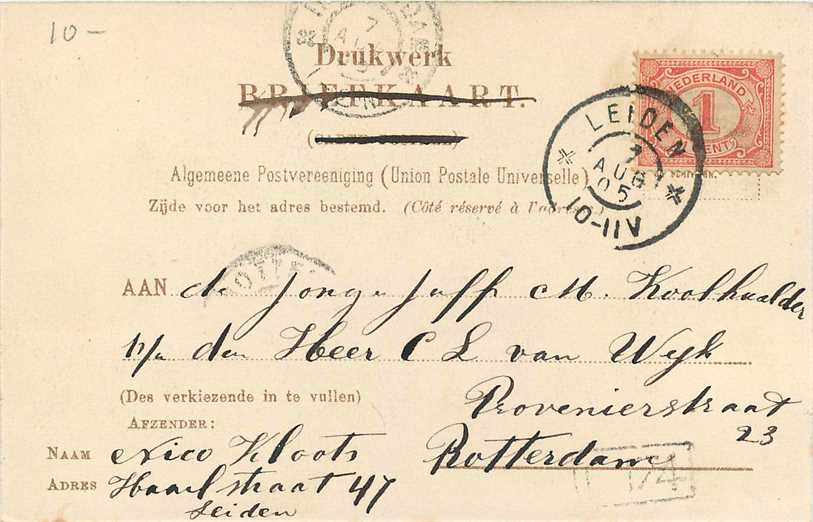 10-
Drukwerk
BRIEFKAART.
(CARTE POSTALE)
NEDERLAND
1
CENT
LEIDEN
7
AUG
05
10-11V
Algemeene Postvereeniging (Union Postale Universelle)
Zijde voor het adres bestemd. (Côté réservé à l'adresse)
AAN de Jonge Juff M. Koolhaalder
p/a den Heer C L van Wyk
(Des verkiezende in te vullen)
Provenierstraat
23
AFZENDER:
NAAM Nico Kloots
Rotterdam
ADRES Haarlstraat 47
Leiden